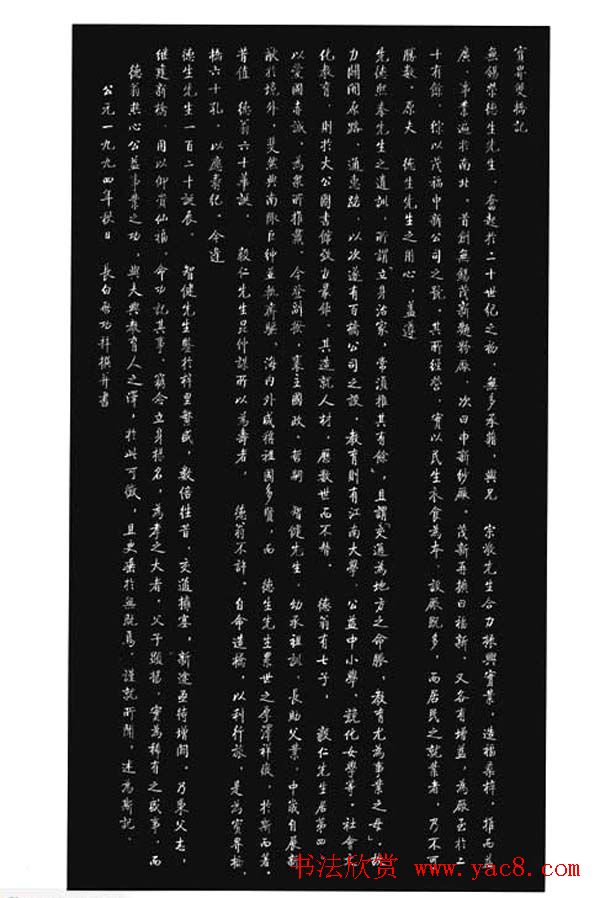 寶界雙橋記
無錫榮德生先生，奮起於二十世紀之初，無多承藉，與兄　宗敬先生合力振興實業，造福桑梓，推而益
廣，事業遍於南北。首創無錫茂新麵粉廠，次曰申新紗廠。茂新再擴曰福新，又各有增益，為廠至於二
十有餘，綜以茂福申新公司之號。其所經營，實以民生衣食為本，設廠既多，而居民之就業者，乃不可
勝數。原夫　德生先生之用心，蓋遵
先德熙泰先生之遺訓，所謂立身治家，常須推其有餘」，且謂「交通為地方之命脈，教育尤為事業之母」故
力闢開原路，通惠路，以次遂有百橋公司之設。教育則有江南大學，公益中小學，競化女學等。社會文
化教育，則於大公圖書館致力最鉅。其造就人材，歷數世而不替。　德翁有七子，　毅仁先生居第四
以愛國赤誠，為眾所推戴。今登副揆，襄主國政。哲嗣　智健先生，幼承祖訓，長助父業，中歲自展
猷於境外，斐然與南陬巨紳並執齊驅，海內外咸稱祖國多賢，而　德生先生累世之厚澤祥徵，於斯而著。
昔值　德翁六十華誕，　毅仁先生昆仲謀所以為壽者，　德翁不許。自命造橋，以利行旅，是為寶界橋。
橋六十孔，以應壽紀。今逢
德生先生一百二十誕辰。　智健先生鑒於梓里繁盛，數倍往昔，交通擁塞，新途亟待增開，乃秉父志，
繼建新橋，用以仰貿仙橋，命功記其事。竊念立身揚名，為孝之大者，父子顯揚，實為稀有之盛事，而
德翁熱心公益事業之功，與夫興教育人之澤，於此可徵，且更垂於無既焉。謹就所聞，述為斯記。
公元一九九四年秋日　長白啟功拜撰并書
书法欣赏 www.yac8.com